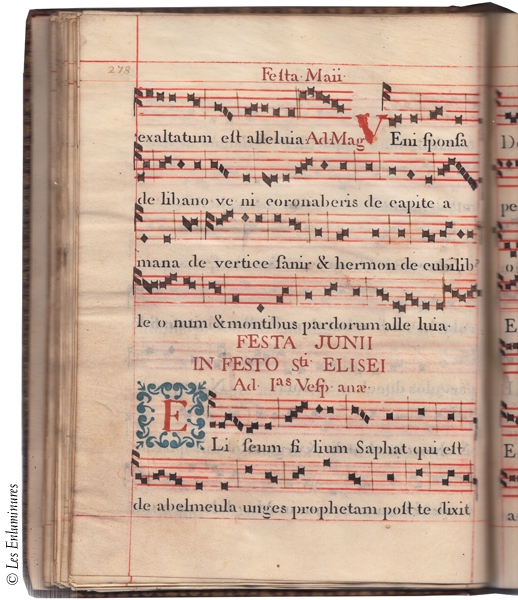 278
Festa Maii
exaltatum est alleluia Ad Mag Veni sponsa
de libano ve ni coronaberis de capite a
mana de vertice sanir & hermon de cubilibꝰ
le o num & montibus pardorum alle luia.
FESTA JUNII
IN FESTO Sti. ELISEI
Ad Ias Vesp anæ
E Li seum fi lium Saphat qui est
de abelmeula unges prophetam post te dixit
© Les Enluminures